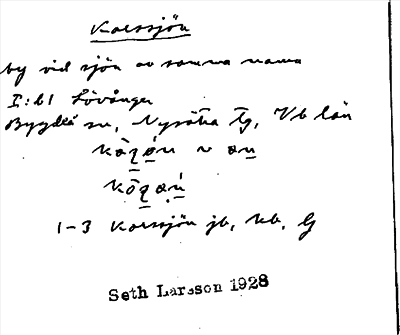 Korssjön
by vid sjön av samma namn
I: b1 Lövånger
Bygdeå sn, Nysätra tg, Vb län
1-3 Korssjön jb, kb, G
Seth Larsson 1928